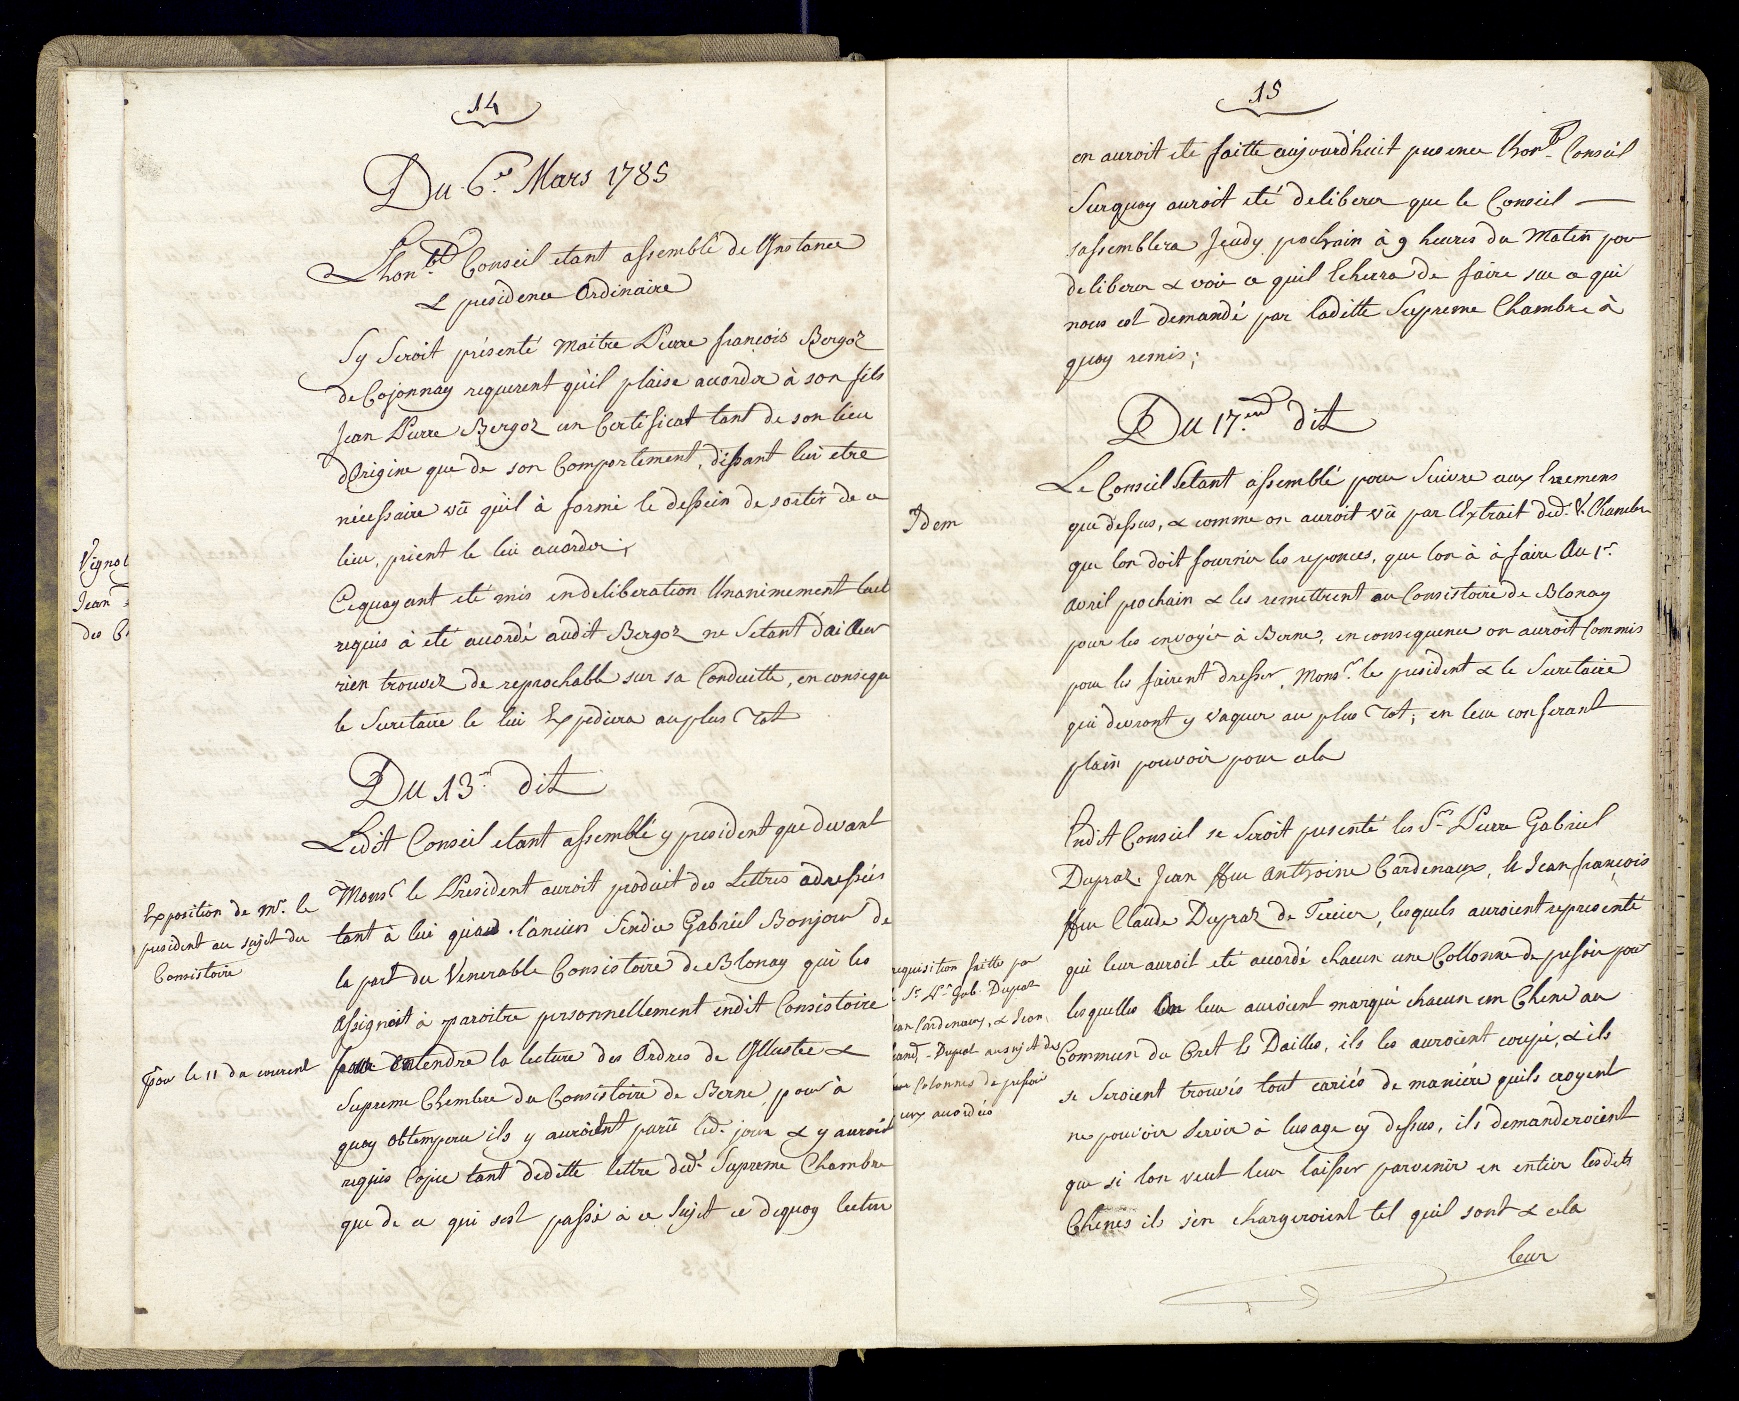 14
Du 6.e Mars 1785
Lhon.ble Conseil etant assemblé de Instance
& presidence Ordinaire
Sy Seroit présenté Maitre Pierre françois Bergoz
de Cojonnay requerent qu'il plaise accorder à son fils
Jean Pierre Bergoz un Certificat tant de son lieu
dOrigine que de son Comportement, dissant lui etre
nécessaire vû qu'il à formé le dessein de sortir de ce
lieu, prient le lui accorder;
Cequayant eté mis en deliberation Unanimement lacte
requis à eté accordé audit Bergoz ne Setant d'ailleur
rien trouvez de reprochable sur sa Conduitte, en conseque
le Secretaire le lui Expediera au plus Tot
Du 13.e dit
Ledit Conseil etant assemblé y president que devant
Exposition de Mr. le
president au sujet du
Consistoire
Mons.r le President auroit produit des Lettres adressées
tant à lui quad. l'ancien Sindic Gabriel Bonjour de
la part du Venerable Consistoire de Blonay qui les
Assignoit à paroitre personnellement en dit Consistoire
Pour le 11 du courent
pour entendre la lecture des Ordres de Illustre &
Supreme Chembre du Consistoire de Berne, pour à
quoy obtemperu ils y auroient parû led. jour & y auroit
requis Copie tant deditte lettre ded.e Supreme Chambre
que de ce qui sest passé à ce Sujet ce dequoy lecture
Vignol
Jean
des C
15
en auroit ete faitte aujourdhuit presence lhon.ble Conseil
Surquoy auroit eté deliberer que le Conseil —
sassemblera Jeudy prochain à 9 heures du Matin pour
deliberer & voir ce quil lecherra de faire sur ce qui
nous est demandé par laditte Supreme Chambre à
quoy remis;
Du 17.eme dit
Idem
Le Conseil Setant assemblé pour Suivre aux Erremens
que dessus, & comme on auroit vû par lExtrait ded. V. Chambre
que lon doit fournir les reponces, que lon à à faire Au 1er.
Avril prochain & les remettrent au Consistoire de Blonay
pour les envoyér à Berne, en consequence on auroit Commis
pour les fairent dresser, Mons.r le president & le Secretaire
qui devront y vaquer au plus Tot; en leur conferant
plain pouvoir pour cela
requisition faitte par
Sr. Pre Gab. Dupraz
Jean Cordenaux, & Jean
Dupraz au sujet des
Colonnes de pressoir
eux accordées
Endit Conseil se Seroit presenté les Srs. Pierre Gabriel
Dupraz, Jean ffeu Anthoine Cardenaux, & Jean françois
ffeu Claude Dupraz de Tercier, lesquels auroient representé
qui leur auroit eté accordé chacun une Collonne de pressoir pour
lesquelles On leur auroient marqué chacun un Chene au
Commun du Cret Es Dailles, ils les auroient coupé, & ils
se Seroient trouvés tout cariés de maniére quils croyent
ne pouvoir Servir à lusage cy dessus, ils demanderoient
que si lon veut leur laisser parvenir en entier lesdits
Chênes ils s'en chargeroient tel quil sont & cela
leur